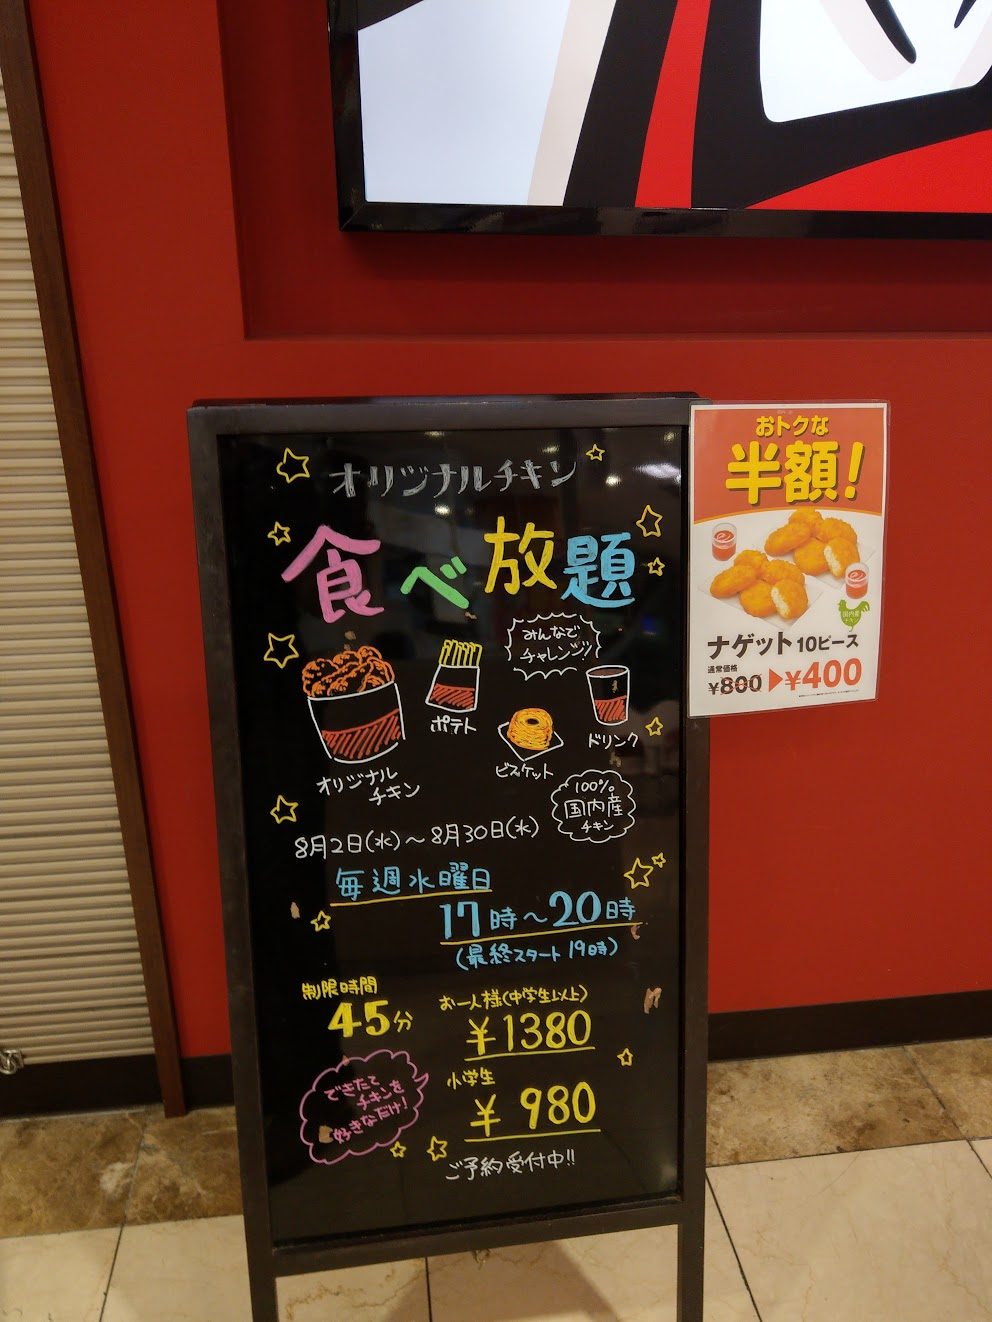 オリジナルチキン
食べ放題
みんなで
チャレンジ!!
ポテト
ドリンク
ビスケット
オリジナル
チキン
100%
国内産
チキン
8月2日(水)～8月30日(水)
毎週水曜日
17時～20時
(最終スタート19時)
制限時間
45分
お一人様(中学生以上)
¥1380
小学生
¥980
できたて
チキンを
好きなだけ!
ご予約受付中!!
おトクな
半額!
国内産
ナゲット10ピース
通常価格
¥800▶¥400